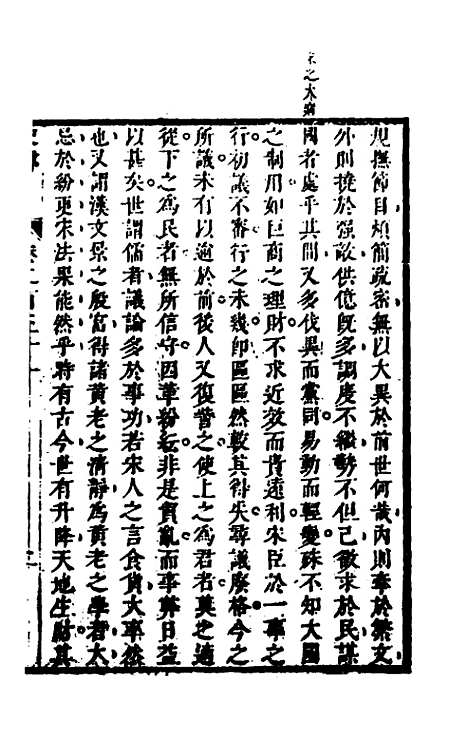 宋之大弊
規撫節目煩簡疏密無以大異於前世何哉内則牽於繁文
外則撓於强敵供億既多調度不繼勢不但已徵求於民謀
國者處乎其間又多伐異而黨同易動而輕變殊不知大國
之制用如巨商之理財不求近效而貴遠利宋臣於一事之
行初議不審行之未幾即區區然較其得失尋議廢格今之
所議未有以逾於前後人又復訾之使上之爲君者莫之適
從下之爲民者無所信守因革紛紜非是貿亂而事弊日益
以甚矣世謂儒者議論多於事功若宋人之言食貨大率然
也又謂漢文景之殷富得諸黄老之清靜爲黄老之學者大
忌於紛更宋法果能然乎時有古今世有升降天地生財其
卷二百五十